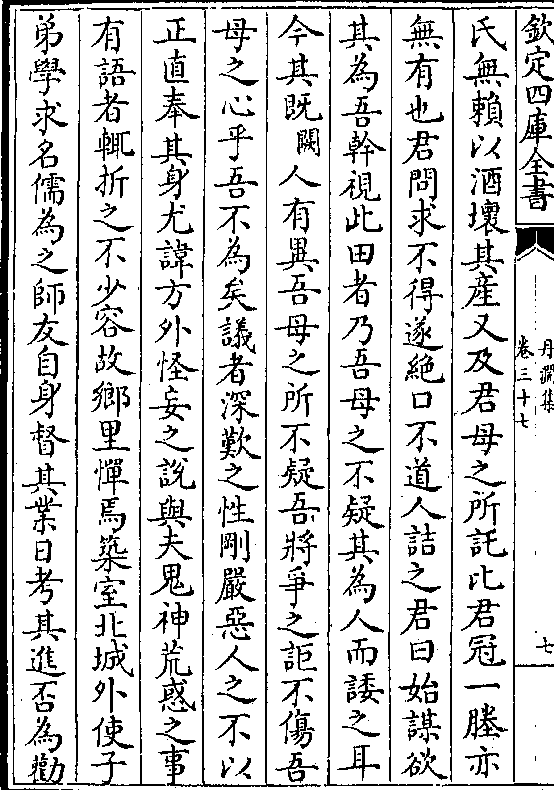 欽定四庫全書
丹淵集
卷三十七
七
氏無賴以酒壞其產又及君母之所託比君冠一塍亦
無有也君問求不得遂絶口不道人詰之君曰始謀欲
其為吾幹視此田者乃吾母之不疑其為人而諉之耳
今其既闕人有異吾母之所不疑吾將爭之詎不傷吾
母之心乎吾不為矣議者深歎之性剛嚴惡人之不以
正直奉其身尤諱方外怪妄之說與夫鬼神荒惑之事
有語者輒折之不少容故鄉里憚焉築室北城外使子
弟學求名儒為之師友自身督其業日考其進否為勸